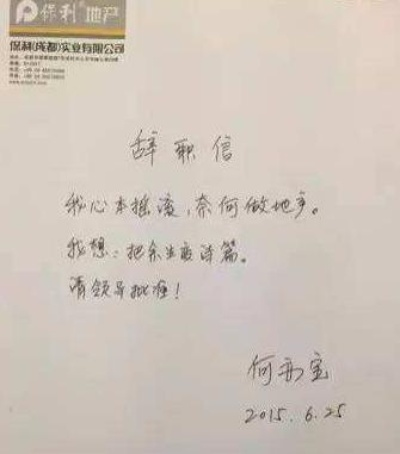 P 保利®地产
保利(成都)实业有限公司
辞职信
我心本摇滚,奈何做地产。
我想:把余生变诗篇。
请领导批准!
何
宝
2015.6.25